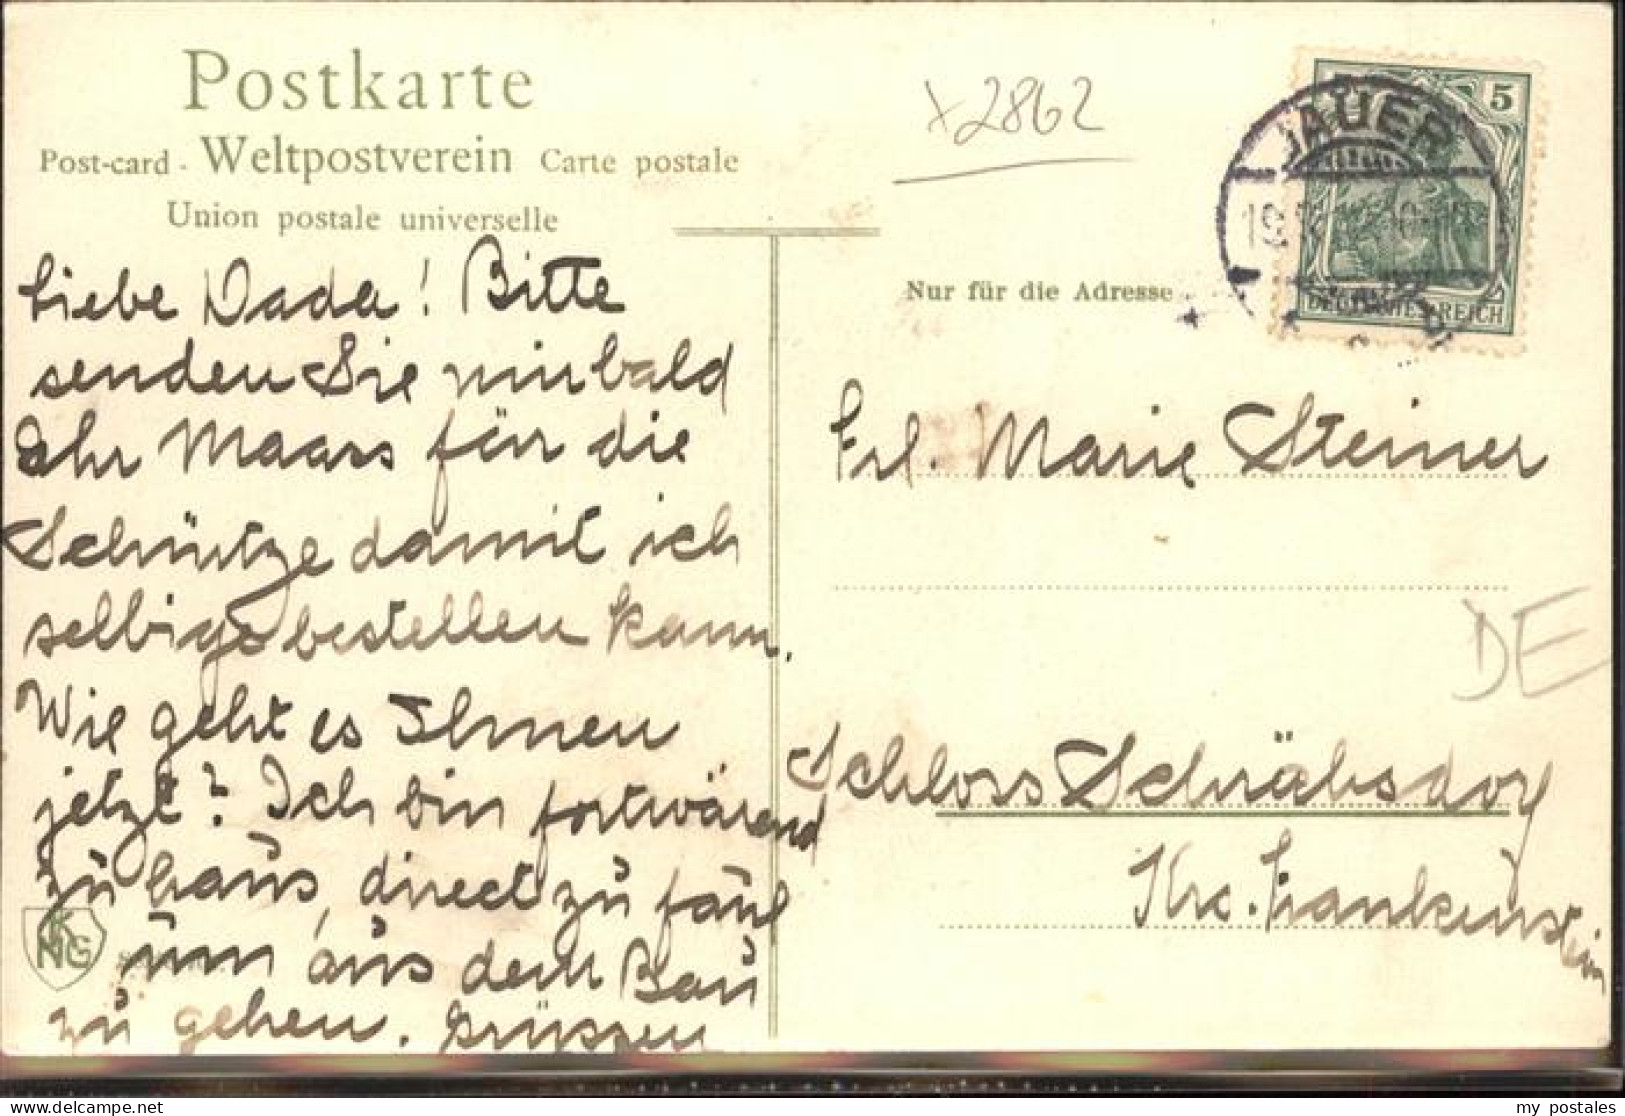 Postkarte
Post-card - Weltpostverein Carte postale
Union postale universelle
x2862
JAUER
5
DEUTSCHES REICH
Nur für die Adresse
Liebe Dada! Bitte
senden Sie mir bald
Ihr Maass für die
Schürtze damit ich
selbige bestellen kann.
Wie geht es Ihnen
jetzt? Ich bin fortwärend
zu haus, direct zu faul
um aus dem Bau
zu gehen. Grüssen
Frl. Marie Steiner
Schloss Schräbsdorf
Krs. Frankenstein
DE
KNG
my postales